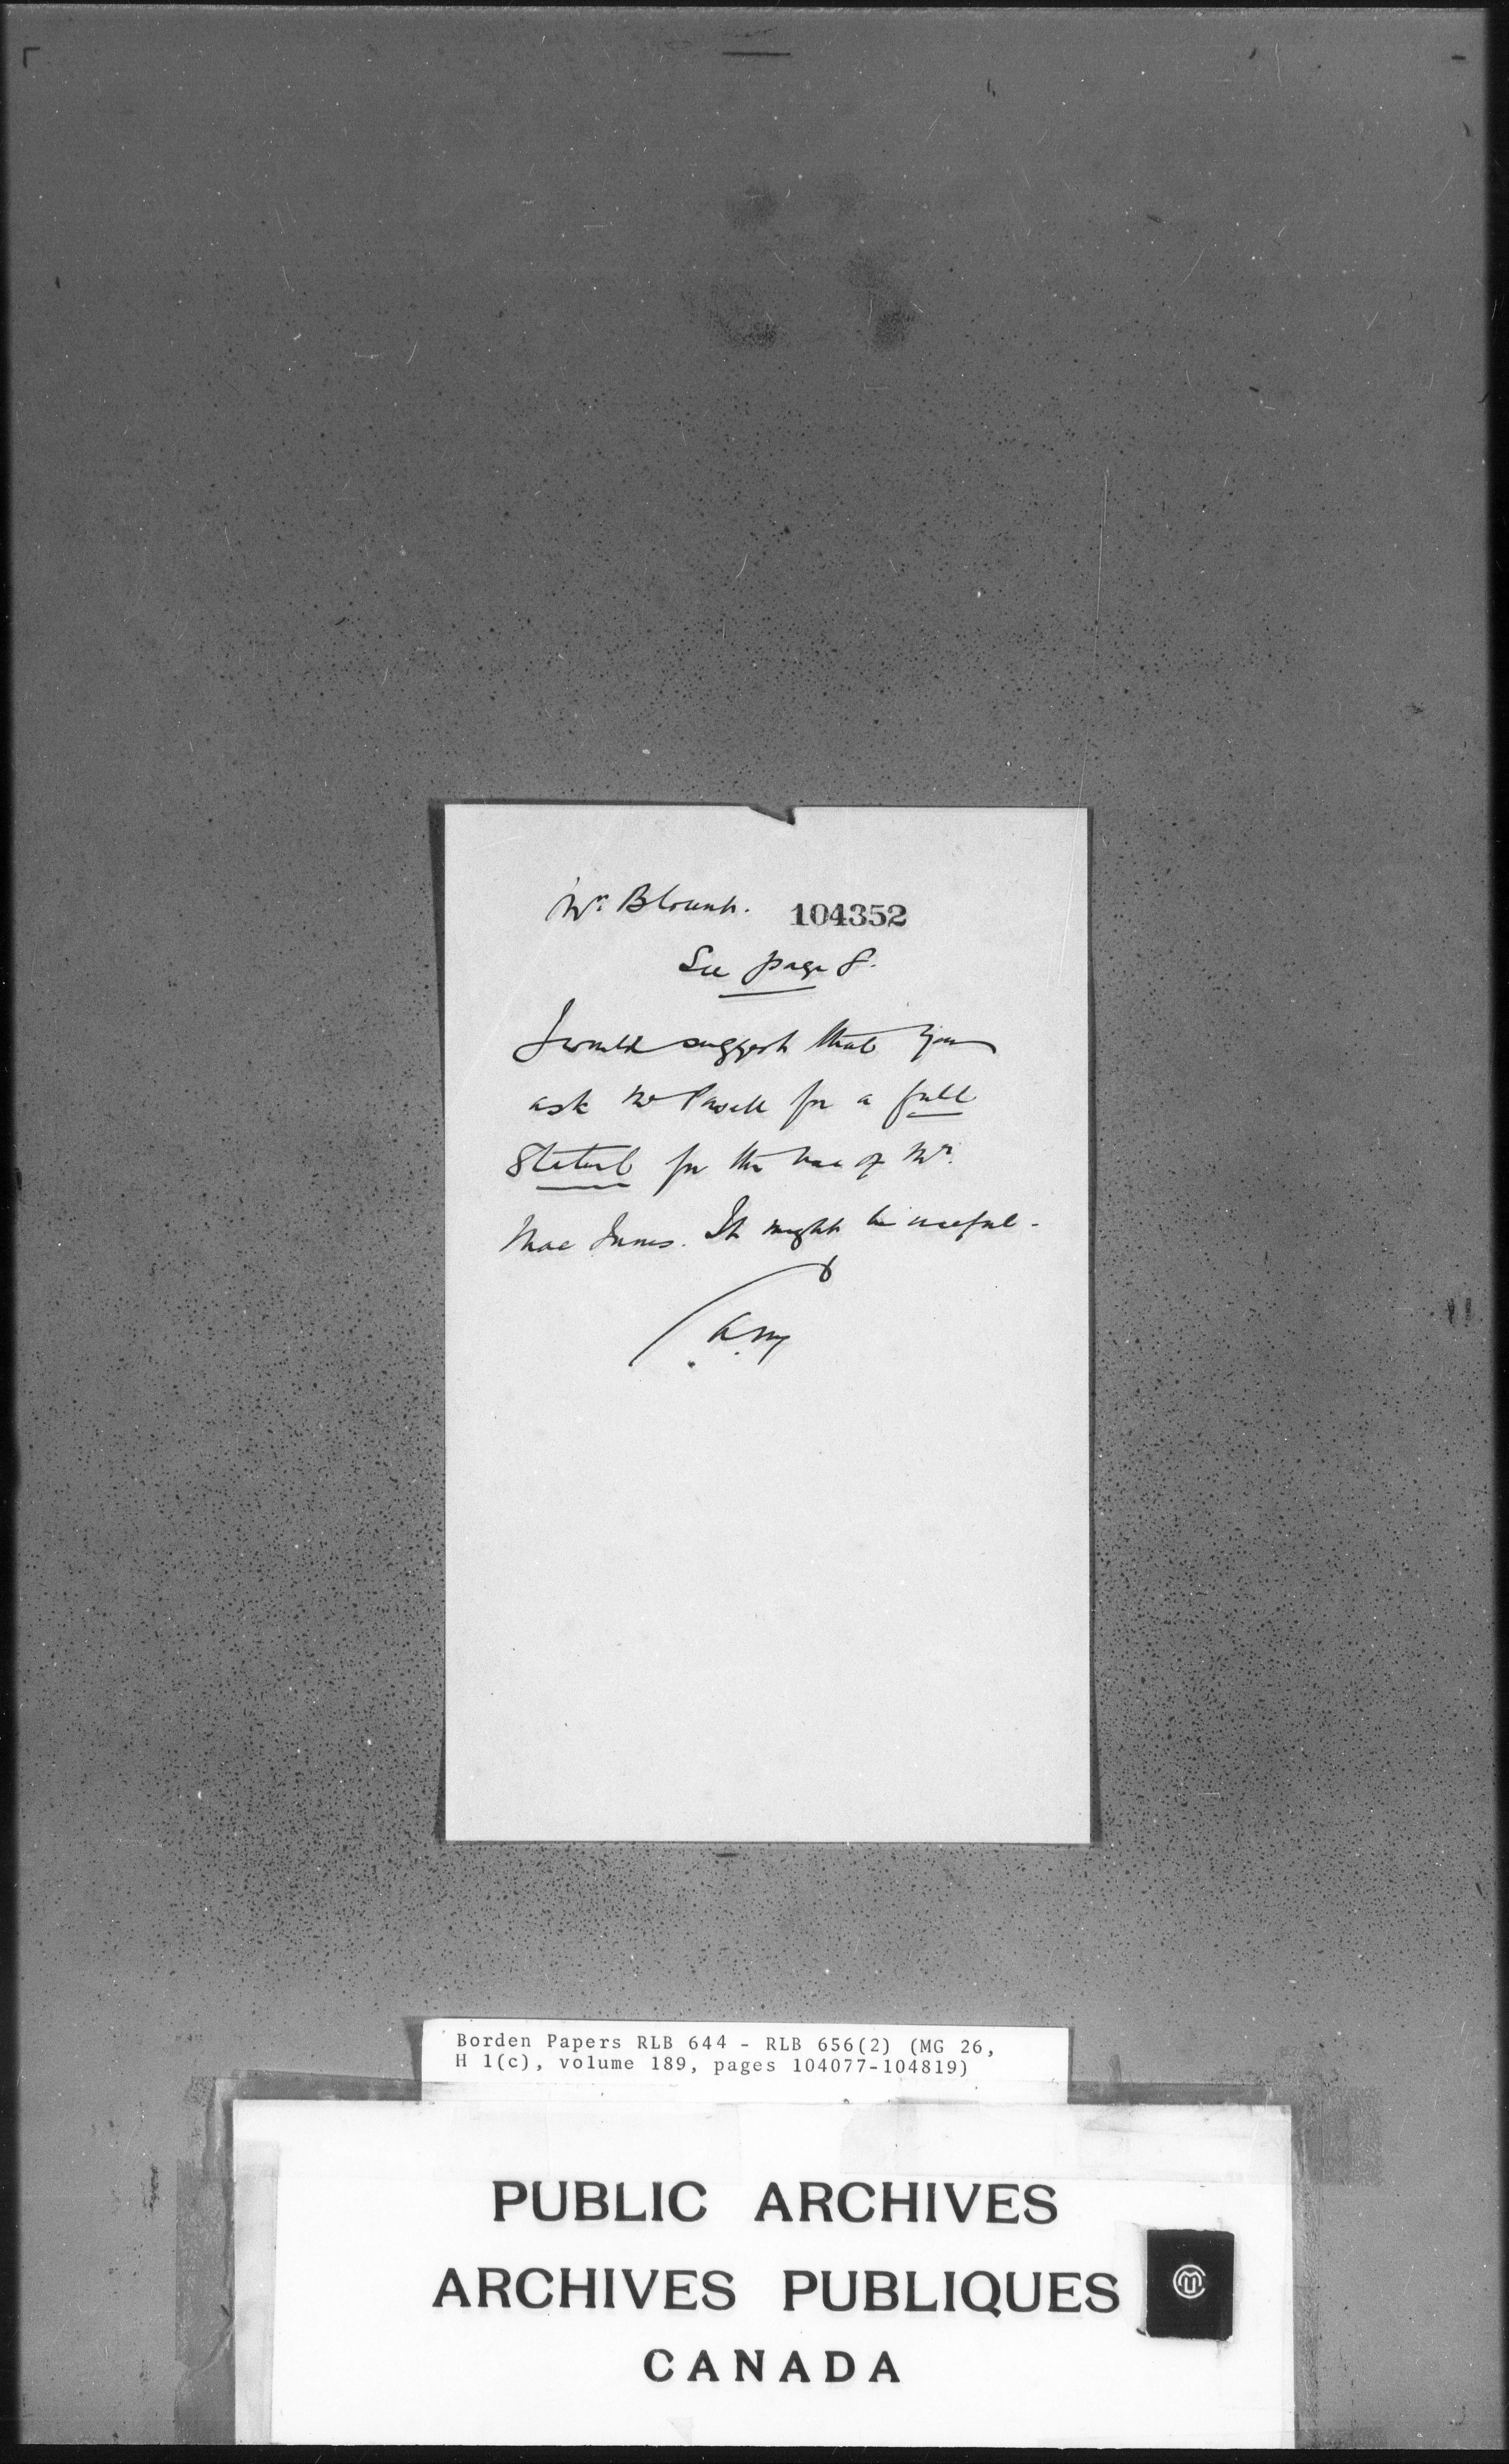 Mr. Blount.
104352
See page 8.
I would suggest that you
ask Mr Powell for a full
Statemt for the use of Mr.
Mac Innes. It might be useful -
Borden Papers RLB 644 - RLB 656(2) (MG 26,
H 1(c), volume 189, pages 104077-104819)
PUBLIC ARCHIVES
ARCHIVES PUBLIQUES
CANADA